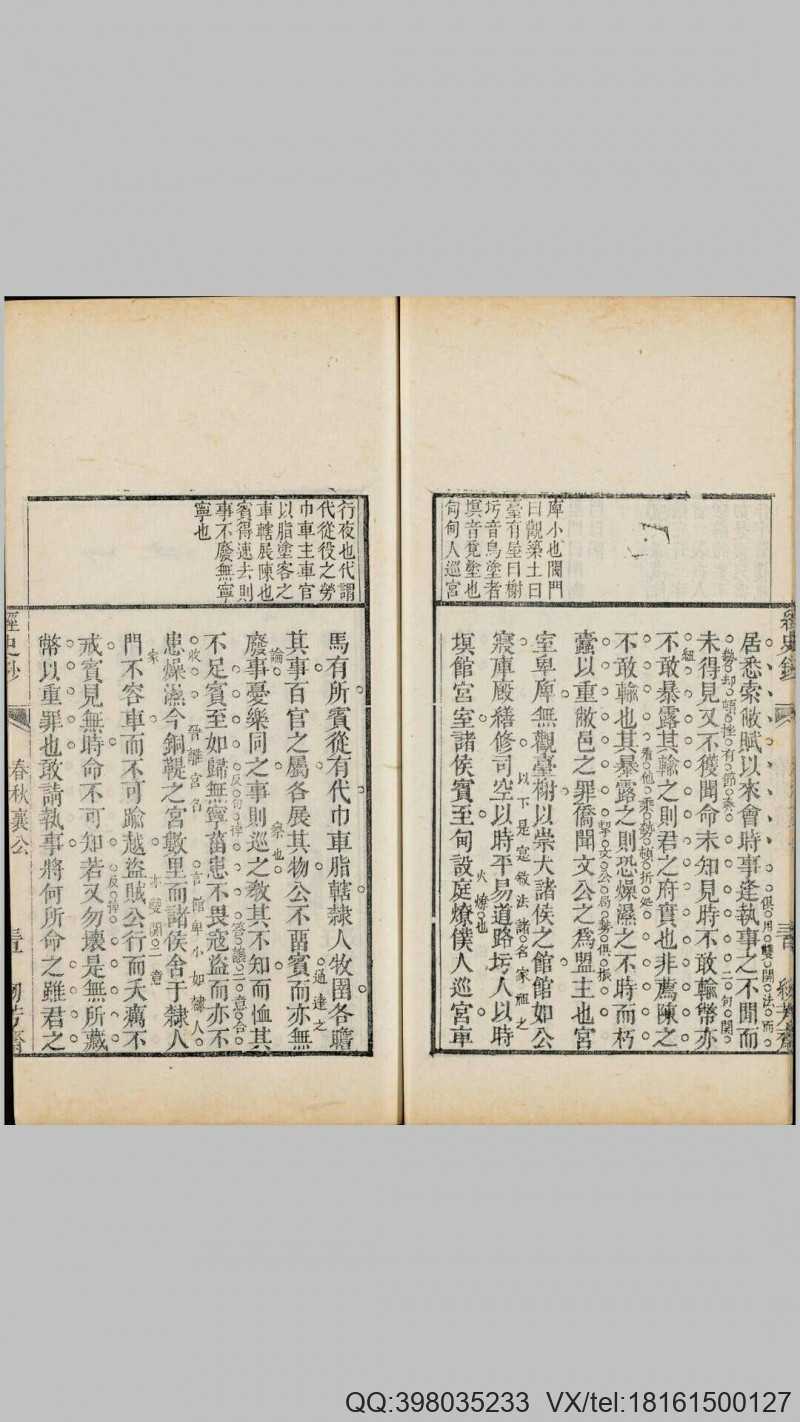 庳小也闕門
曰觀築土曰
臺有屋曰榭
圬音烏塗者
塓音覓塗也
甸甸人巡宮
居悉索敝賦以來會時事逢執事之不閒而
未得見又不獲聞命未知見時不敢輸幣亦
不敢暴露其輸之則君之府實也非薦陳之
不敢輸也其暴露之則恐燥濕之不時而朽
蠹以重敝邑之罪僑聞文公之爲盟主也宮
室卑庳無觀臺榭以崇大諸侯之館館如公
以下是寬敘法諸名家祖之
寢庫廏繕修司空以時平易道路圬人以時
火燎也
塓館宮室諸侯賓至甸設庭燎僕人巡宮車
行夜也代謂
代從役之勞
巾車主車官
以脂塗客之
車轄展陳也
賓得速去則
事不廢無寧
寧也
馬有所賓從有代巾車脂轄隸人牧圉各瞻
通達之
其事百官之屬各展其物公不畱賓而亦無
論
宗也
廢事憂樂同之事則巡之敎其不知而恤其
不足賓至如歸無寧菑患不畏寇盜而亦不
收
晉離宮名
言館卑小如隸人
患燥濕今銅鞮之宮數里而諸侯舍于隸人
家
亦雙關二意
門不容車而不可踰越盜賊公行而夭癘不
戒賓見無時命不可知若又勿壞是無所藏
幣以重罪也敢請執事將何所命之雖君之
經史鈔
春秋襄公